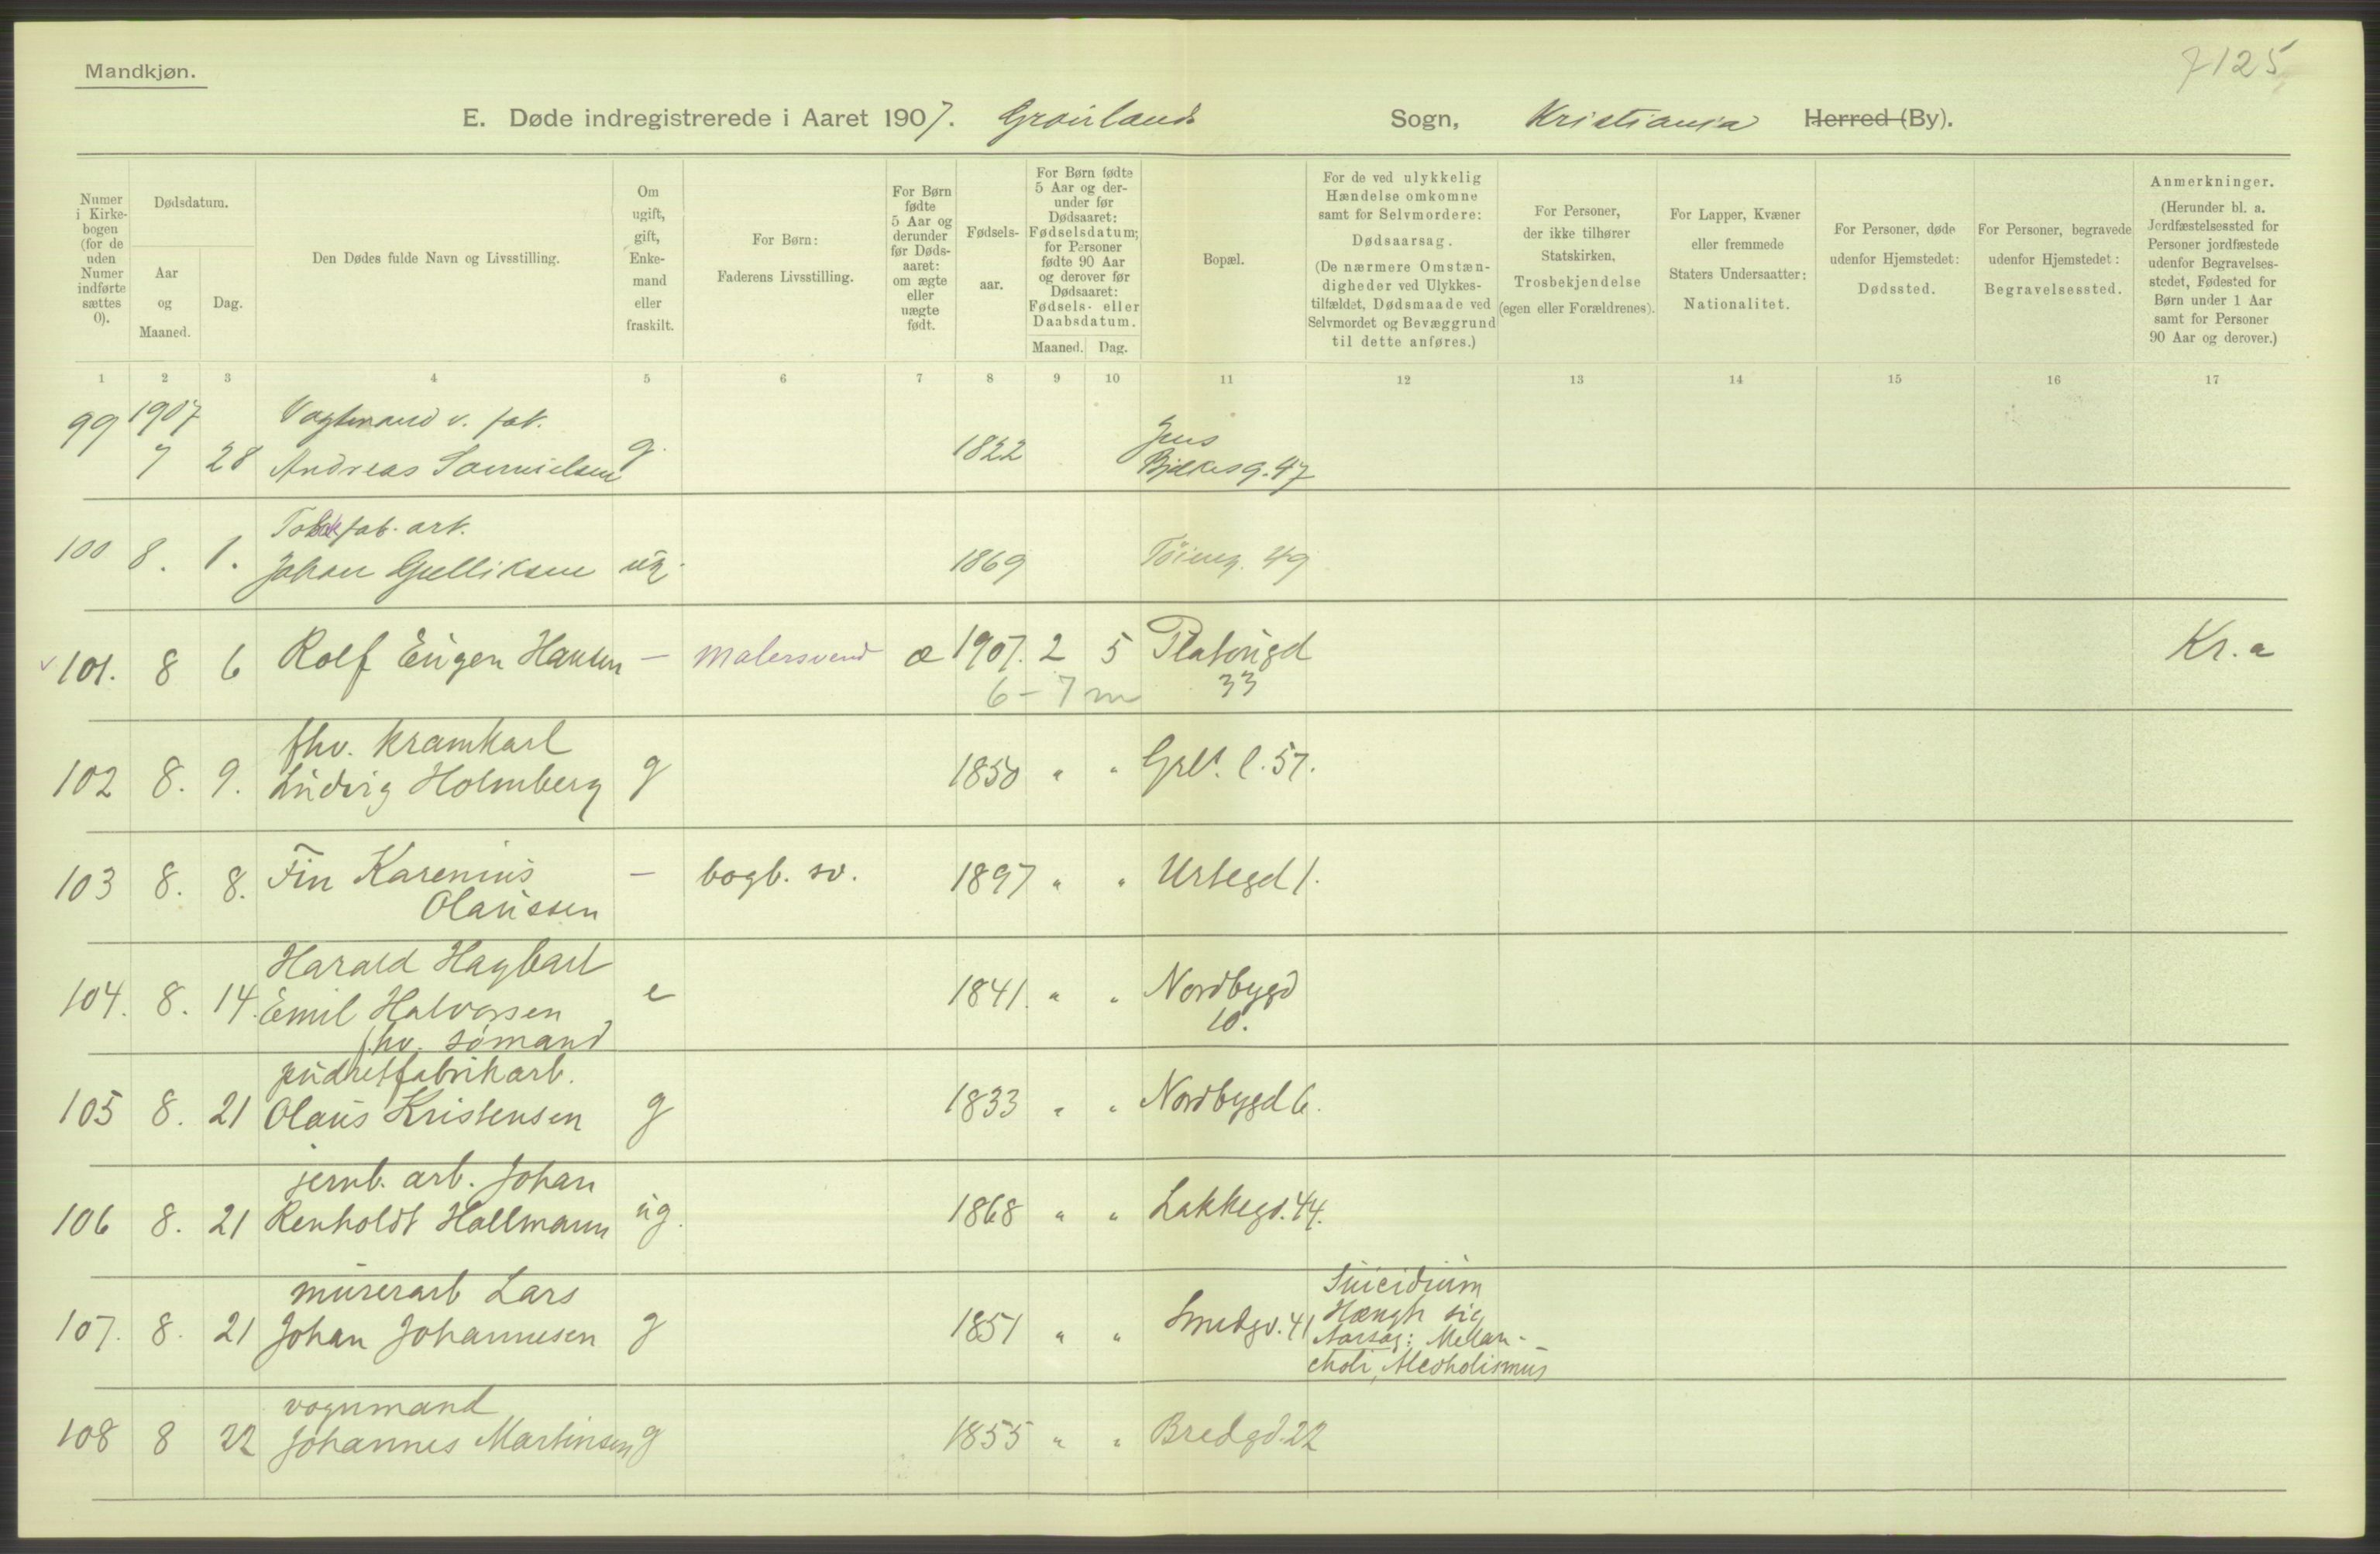 Mandkjøn.
7125
E. Døde indregistrerede i Aaret 1907. Grønlands Sogn, Kristiania Herred (By).
Numer i Kirkebogen (for de uden Numer indførte sættes 0).
Dødsdatum.
Aar og Maaned.
Dag.
Den Dødes fulde Navn og Livsstilling.
Om ugift, gift, Enkemand eller fraskilt.
For Børn: Faderens Livsstilling.
For Børn fødte 5 Aar og derunder før Dødsaaret: om ægte eller uægte født.
Fødselsaar.
For Børn fødte 5 Aar og derunder før Dødsaaret: Fødselsdatum; for Personer fødte 90 Aar og derover før Dødsaaret: Fødsels- eller Daabsdatum.
Maaned. Dag.
Bopæl.
For de ved ulykkelig Hændelse omkomne samt for Selvmordere: Dødsaarsag. (De nærmere Omstændigheder ved Ulykkestilfældet, Dødsmaade ved Selvmordet og Bevæggrund til dette anføres.)
For Personer, der ikke tilhører Statskirken, Trosbekjendelse (egen eller Forældrenes).
For Lapper, Kvæner eller fremmede Staters Undersaatter: Nationalitet.
For Personer, døde udenfor Hjemstedet: Dødssted.
For Personer, begravede udenfor Hjemstedet: Begravelsessted.
Anmerkninger. (Herunder bl. a. Jordfæstelsessted for Personer jordfæstede udenfor Begravelsesstedet, Fødested for Børn under 1 Aar samt for Personer 90 Aar og derover.)
1 2 3 4 5 6 7 8 9 10 11 12 13 14 15 16 17
99 1907 Vagtmand v. fab.
7 28 Andreas Samuelsen g. 1822 Jens Bjelkesg. 47
Tobakfab. arb.
100 8. 1. Johan Gulliksen ug. 1869 Tøieng. 49
101. 8 6 Rolf Eugen Hansen — Malersvend æ 1907. 2 5 Platougd 33 Kr.a
6 - 7 m
fhv. kramkarl
102 8. 9. Ludvig Holmberg g 1850 " " Grls. l. 57.
103 8. 8. Fin Karenius — bogb. sv. 1897 " " Urtegd 1.
Olaussen
Harald Hagbart
104. 8. 14. Emil Halvorsen e 1841. " " Nordbygd 10.
fhv. sømand
pudretfabrikarb.
105 8. 21 Olaus Kristensen g 1833 " " Nordbygd 6.
jernb. arb. Johan
106 8. 21 Renholdt Hallmann ug. 1868 " " Lakkegd. 44.
murerarb Lars
107. 8. 21 Johan Johannesen g 1851 " " Smedgd. 41
Suicidium
Hængt sig
Aarsag: Melan-
choli, Alcoholismus
vognmand
108 8 22 Johannes Martinsen g 1855 " " Bredgd. 22